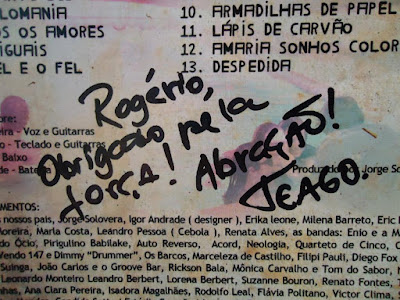 LOMANIA
OS OS AMORES
IGUAIS
EL E O FEL
10. ARMADILHAS DE PAPEL
11. LÁPIS DE CARVÃO
12. AMARIA SONHOS COLOR
13. DESPEDIDA
Rogério,
Obrigado pela
força! Abração!
TEAGO.
ore:
eira - Voz e Guitarras
o - Teclado e Guitarras
Baixo
de - Bateria
Produzido por Jorge So
MENTOS:
nossos pais, Jorge Solovera, Igor Andrade ( designer ), Erika leone, Milena Barreto, Eric
Moreira, Maria Costa, Leandro Pessoa ( Cebola ), Renata Alves, as bandas: Enio e a M
do Ócio, Pirigulino Babilake, Auto Reverso, Acord, Neologia, Quarteto de Cinco, C
Vendo 147 e Dimmy "Drummer", Os Barcos, Marceleza de Castilho, Filipi Pauli, Diego Fox
Suinga, João Carlos e o Groove Bar, Rickson Bala, Mônica Carvalho e Tom do Sabor, N
Leonardo Monteiro Leandro Berbert, Lorena Berbert, Suzanne Bouron, Renato Fontes,
Ana Clara Pereira, Isadora Magalhães, Rodolfo Leal, Flávia Politano, Victor Clima,